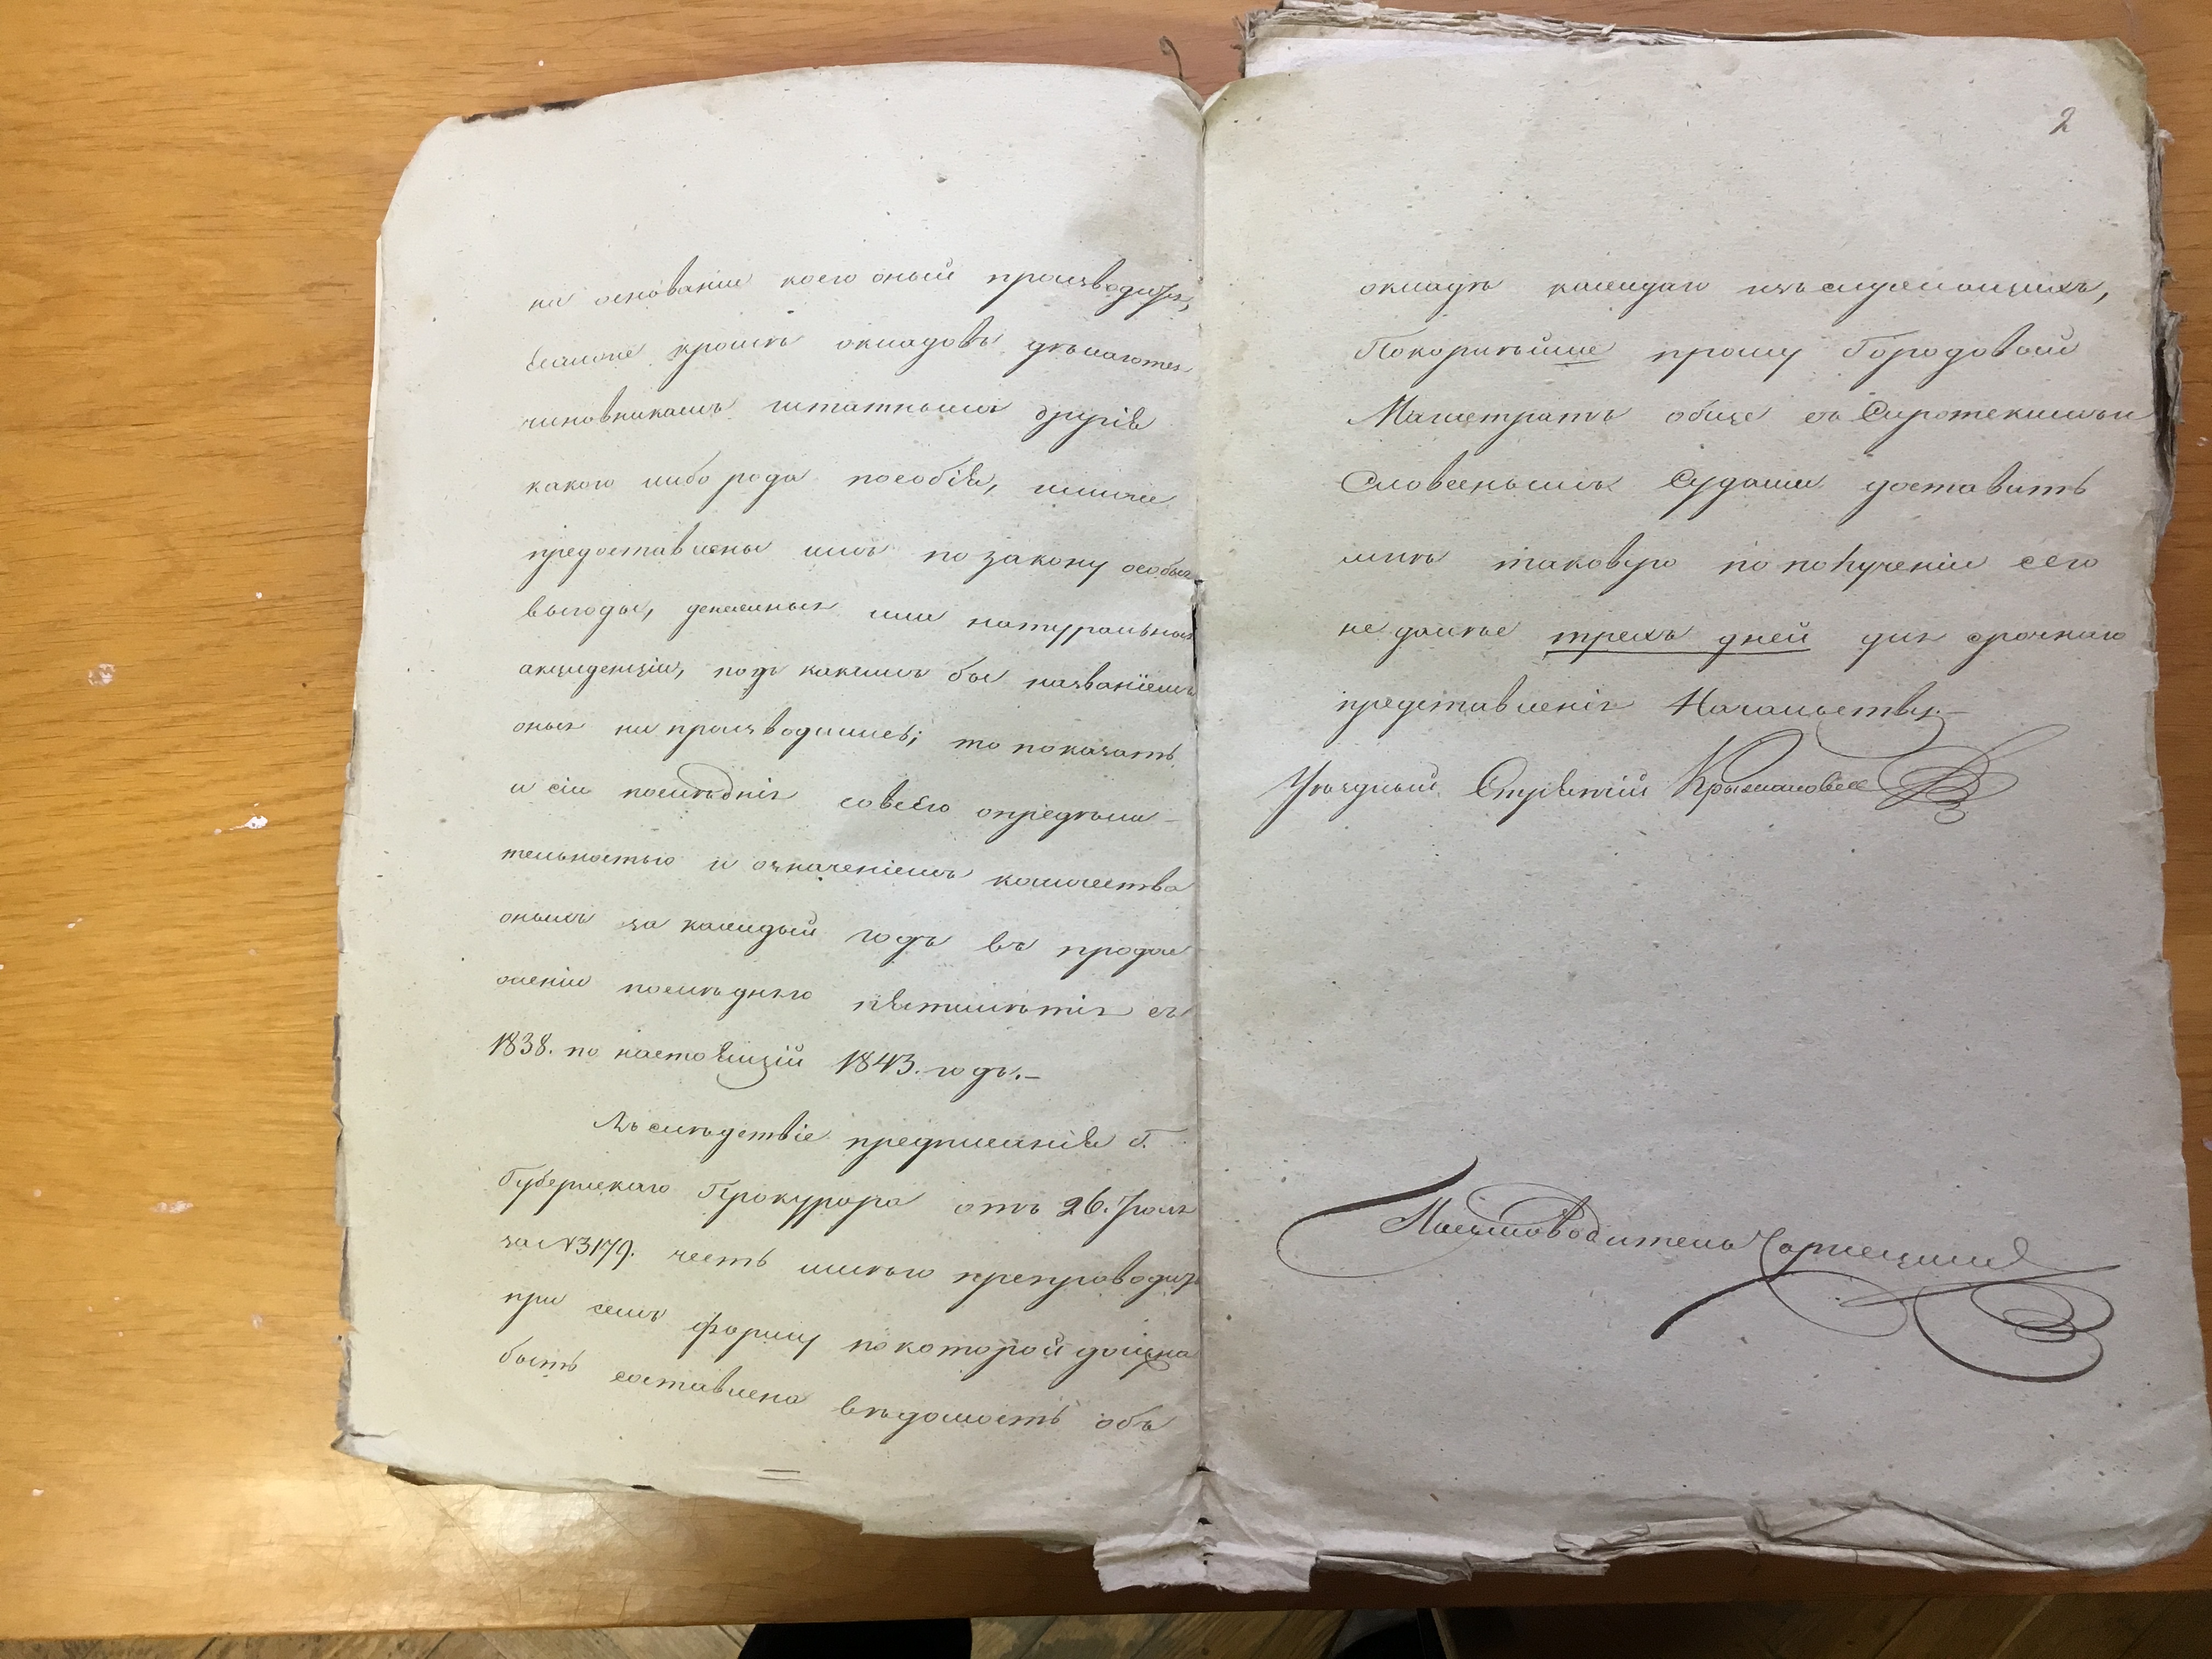 на основаніи коего оный производится,
Еслиже кромѣ окладовъ дѣлаются
чиновникамъ штатнымъ другія
какого либо рода пособія, или же
предоставлены имъ по закону особыя
выгоды, денежныя или натуральныя
акциденціи, подъ какимъ бы названіемъ
оныя ни производились; то показать
и сіи послѣднія со всею опредѣли-
тельностью и означеніемъ количества
оныхъ за каждый годъ въ продол
женіи послѣдняго пятилѣтія съ
1838. по настоящій 1843. годъ.—
Въ слѣдствіе предписанія Г.
Губернскаго Прокурора отъ 26. Іюля
за №3179. честь имѣю препроводить
при семъ форму по которой должна
быть составлена вѣдомость объ
2
окладѣ каждаго изъ служащихъ,
Покорнѣйше прошу Городовой
Магистратъ обще съ Сиротскимъ и
Словеснымъ Судами доставить
мнѣ таковую по полученіи сего
не далѣе трехъ дней для срочнаго
представленія Начальству.—
Уѣздный Стряпчій
Письмоводитель